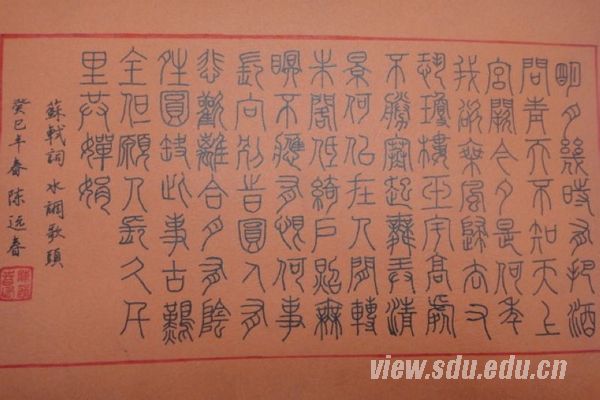 明月幾時有把酒
問青天不知天上
宮闕今夕是何年
我欲乘風歸去又
恐瓊樓玉宇高處
不勝寒起舞弄清
景何似在人間轉
朱閣低綺戶照無
眠不應有恨何事
長向別時圓人有
悲歡離合月有陰
晴圓缺此事古難
全但願人長久千
里共嬋娟
蘇軾詞 水調歌頭
癸巳年春 陈远春
view.sdu.edu.cn